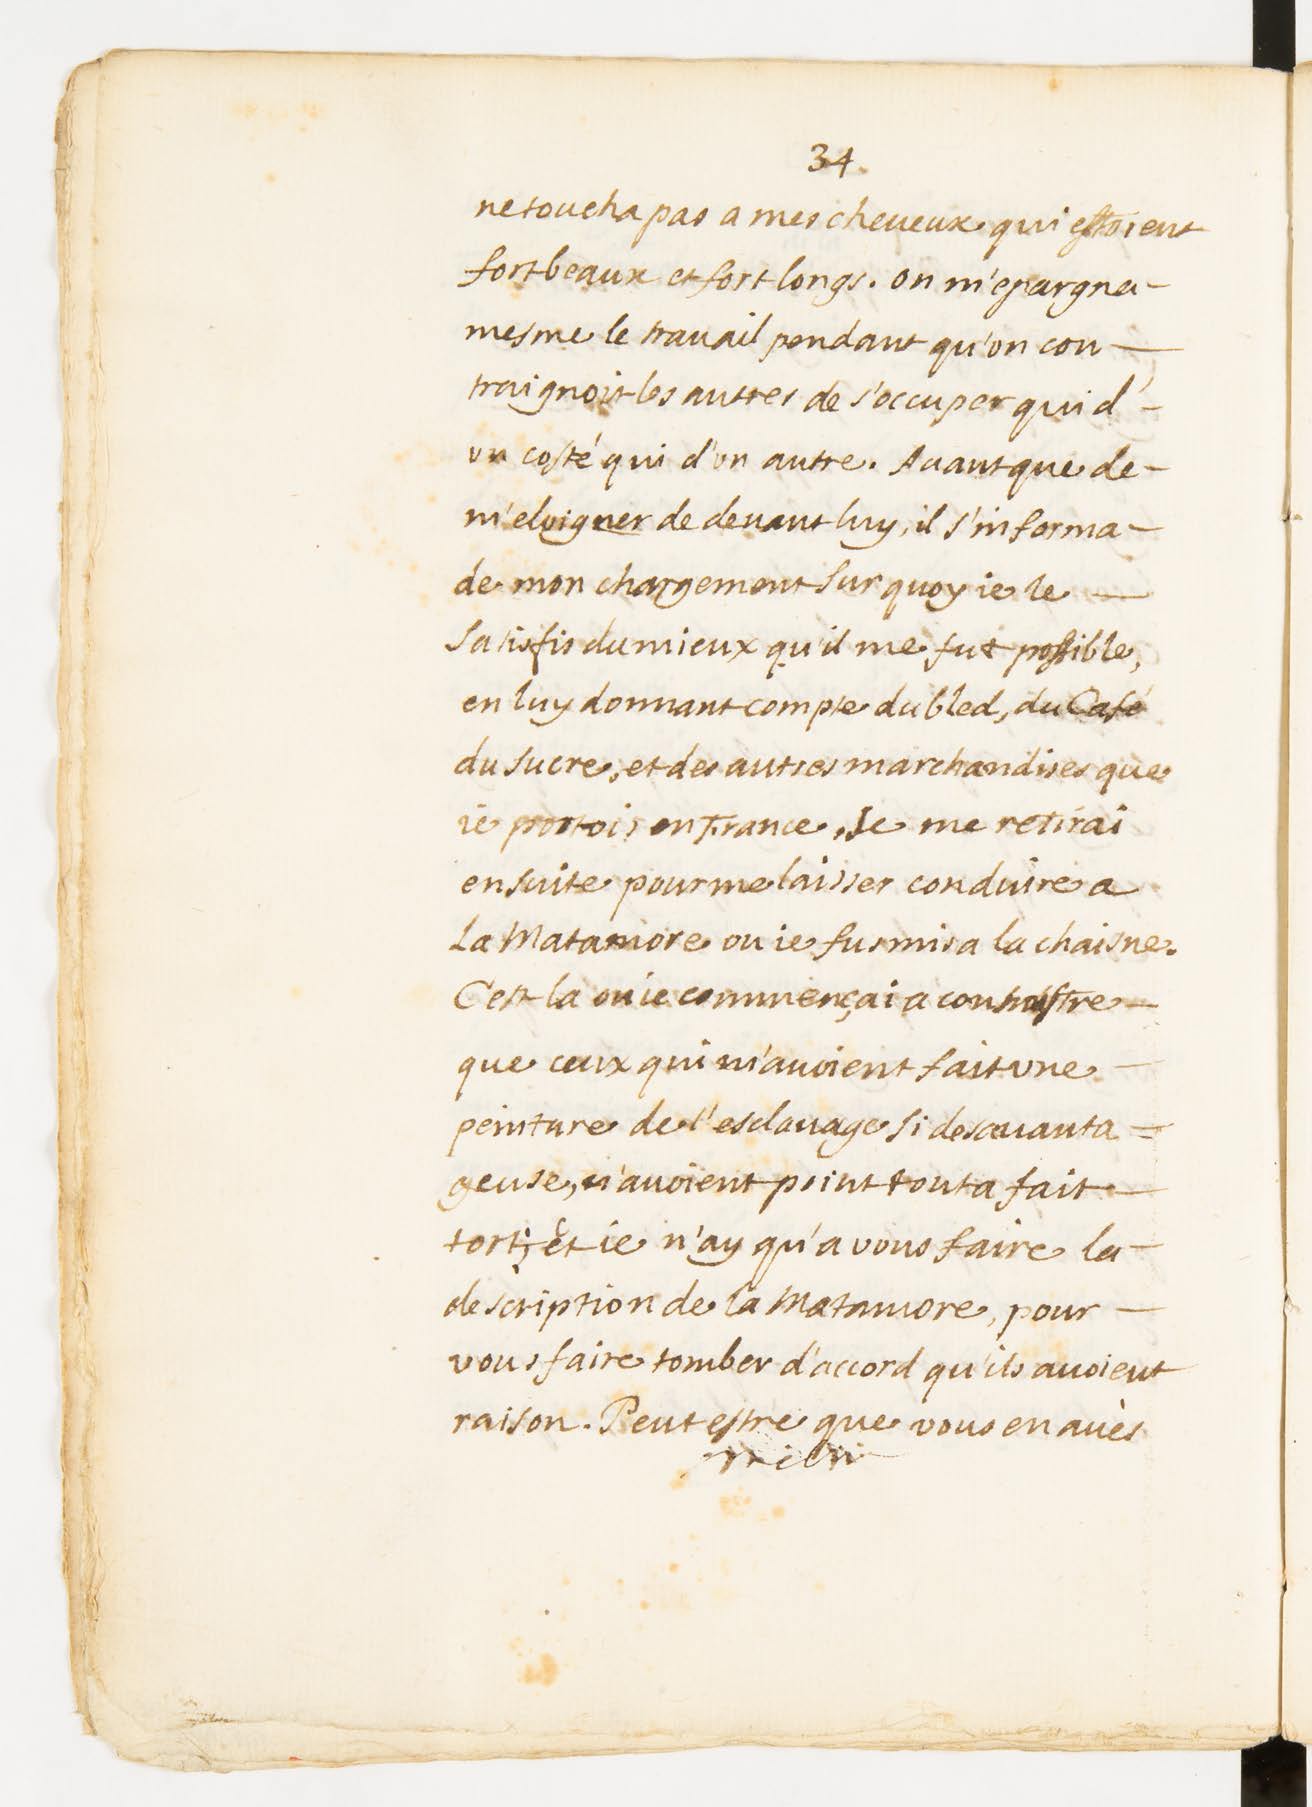 34.
ne toucha pas a mes cheueux qui estoient
fort beaux et fort longs. on m'epargna -
mesme le trauail pendant qu'on con —
traignoit les autres de s'occuper qui d' -
vn costé qui d'vn autre. Auant que de -
m'eloigner de deuant luy, il s'informa -
de mon chargement sur quoy ie le —
satisfis du mieux qu'il me fut possible,
en luy donnant compte du bled, du Café
du sucre, et des autres marchandises que
ie portois en France, Je me retirai
ensuite pour me laisser conduire a
la Matamore ou ie fus mis a la chaisne.
C'est la ou ie commençai a connoistre -
que ceux qui m'auoient fait vne -
peinture de l'esclauage si desauanta =
geuse, n'auoient point tout a fait -
tort; et ie n'ay qu'a vous faire la -
description de la Matamore, pour -
vous faire tomber d'accord qu'ils auoient
raison. Peut estre que vous en auès